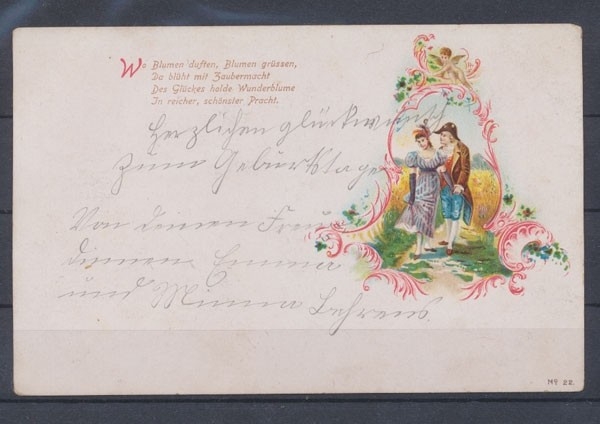 Wo Blumen duften, Blumen grüssen,
Da blüht mit Zaubermacht
Des Glückes holde Wunderblume
In reicher, schönster Pracht.
Herzlichen glückwunsch
zum Geburtstage
Von deinen Freun
dinnen Emma
und Minna Behrens.
No 22